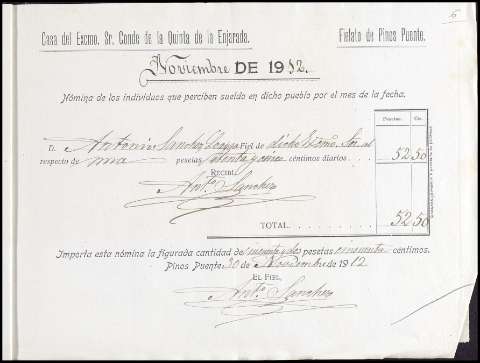 6
Casa del Excmo. Sr. Conde de la Quinta de la Enjarada.
Fielato de Pinos Puente.
Noviembre DE 1912.
Nómina de los individuos que perciben sueldo en dicho pueblo por el mes de la fecha.
Pesetas. Cts.
D. Antonio Sanchez Fiel de dicho Excmo. Sor. al
respecto de una pesetas setenta y cinco céntimos diarios 52 50
RECIBÍ,
Ant.º Sanchez
TOTAL 52 50
Importa esta nómina la figurada cantidad de cincuenta y dos pesetas cincuenta céntimos.
Pinos Puente 30 de Noviembre de 1912
EL FIEL,
Ant.º Sanchez